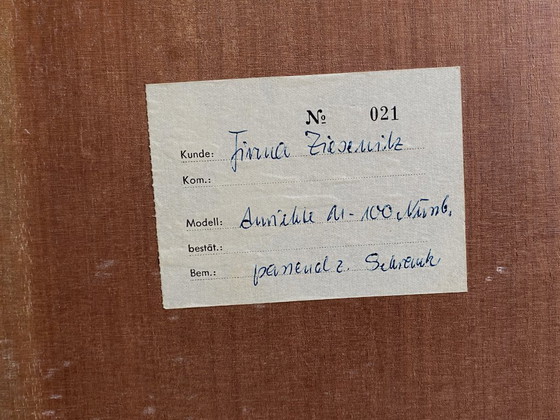 № 021
Kunde: Firma Ziesenitz
Kom.:
Modell: Anrichte M-100 Nussb.
bestät.:
Bem.: passend z. Schrank